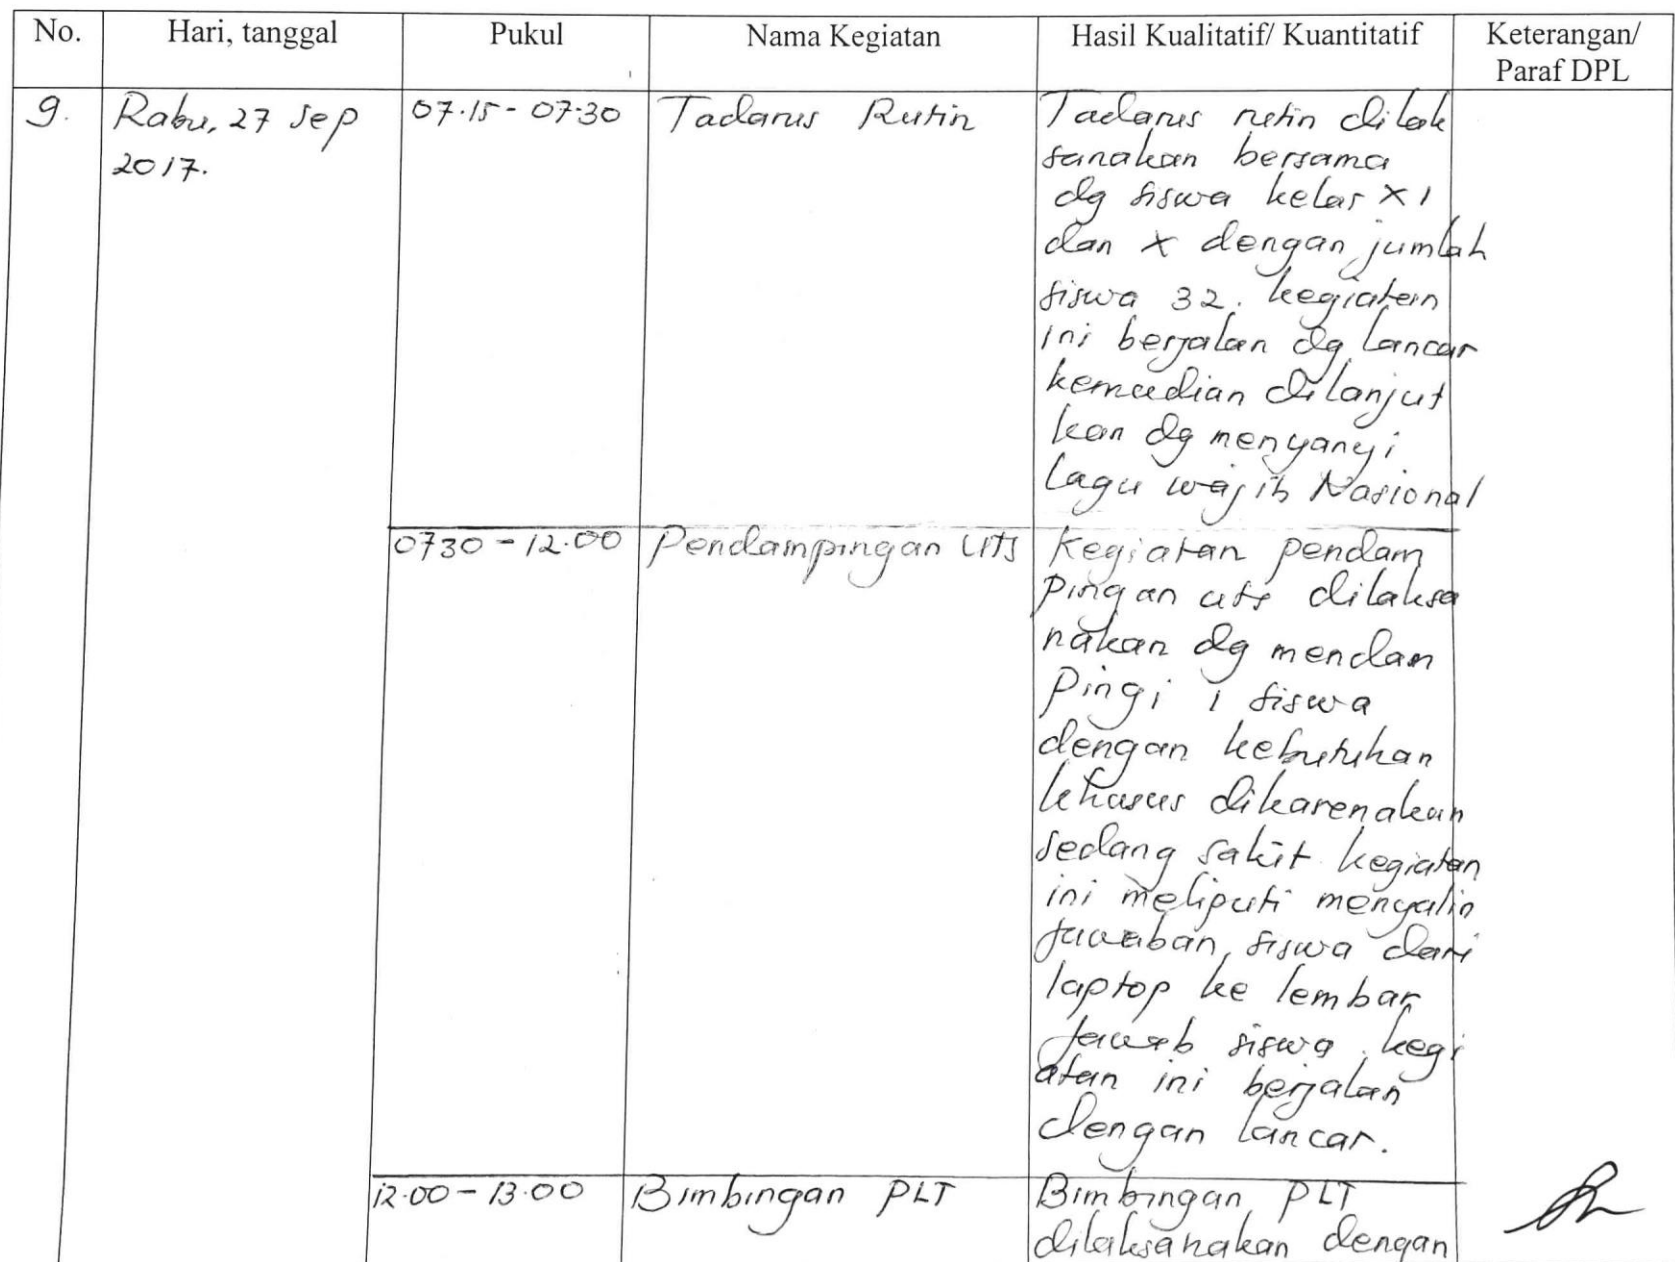 No. Hari, tanggal Pukul Nama Kegiatan Hasil Kualitatif/ Kuantitatif Keterangan/
Paraf DPL
9. Rabu, 27 Sep 07.15 - 07.30 Tadarus Rutin Tadarus rutin dilak
2017. sanakan bersama
dg siswa kelas XI
dan X dengan jumlah
siswa 32. kegiatan
ini berjalan dg lancar
kemudian dilanjut
kan dg menyanyi
lagu wajib Nasional
0730 - 12.00 Pendampingan UTS Kegiatan pendam
pingan uts dilaksa
nakan dg mendam
pingi 1 siswa
dengan kebutuhan
khusus dikarenakan
sedang sakit kegiatan
ini meliputi menyalin
jawaban siswa dari
laptop ke lembar
jawab siswa. kegi
atan ini berjalan
dengan lancar.
12.00 - 13.00 Bimbingan PLT Bimbingan PLT
dilaksanakan dengan